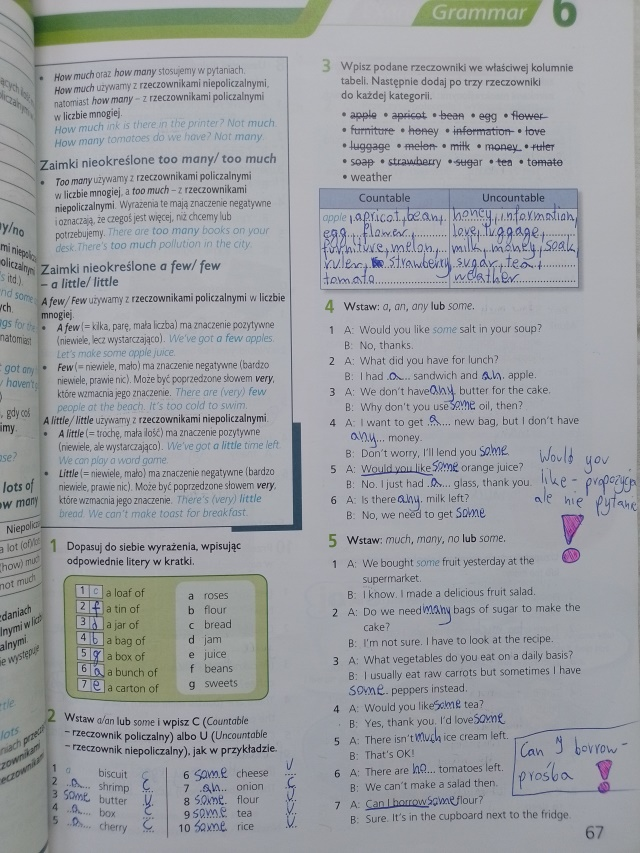 Grammar 6
• How much oraz how many stosujemy w pytaniach.
How much używamy z rzeczownikami niepoliczalnymi,
natomiast how many – z rzeczownikami policzalnymi
w liczbie mnogiej.
How much ink is there in the printer? Not much.
How many tomatoes do we have? Not many.
Zaimki nieokreślone too many/ too much
• Too many używamy z rzeczownikami policzalnymi
w liczbie mnogiej, a too much – z rzeczownikami
niepoliczalnymi. Wyrażenia te mają znaczenie negatywne
i oznaczają, że czegoś jest więcej, niż chcemy lub
potrzebujemy. There are too many books on your
desk. There's too much pollution in the city.
Zaimki nieokreślone a few/ few
– a little/ little
A few/ Few używamy z rzeczownikami policzalnymi w liczbie
mnogiej.
• A few (= kilka, parę, mała liczba) ma znaczenie pozytywne
(niewiele, lecz wystarczająco). We've got a few apples.
Let's make some apple juice.
• Few (= niewiele, mało) ma znaczenie negatywne (bardzo
niewiele, prawie nic). Może być poprzedzone słowem very,
które wzmacnia jego znaczenie. There are (very) few
people at the beach. It's too cold to swim.
A little/ Little używamy z rzeczownikami niepoliczalnymi.
• A little (= trochę, mała ilość) ma znaczenie pozytywne
(niewiele, ale wystarczająco). We've got a little time left.
We can play a word game.
• Little (= niewiele, mało) ma znaczenie negatywne (bardzo
niewiele, prawie nic). Może być poprzedzone słowem very,
które wzmacnia jego znaczenie. There's (very) little
bread. We can't make toast for breakfast.
1 Dopasuj do siebie wyrażenia, wpisując
odpowiednie litery w kratki.
1 c a loaf of a roses
2 f a tin of b flour
3 d a jar of c bread
4 b a bag of d jam
5 g a box of e juice
6 a a bunch of f beans
7 e a carton of g sweets
2 Wstaw a/an lub some i wpisz C (Countable
– rzeczownik policzalny) albo U (Uncountable
– rzeczownik niepoliczalny), jak w przykładzie.
1 a biscuit C
2 a shrimp C
3 some butter U
4 a box C
5 a cherry C
6 some cheese U
7 an onion C
8 some flour U
9 some tea U
10 some rice U
3 Wpisz podane rzeczowniki we właściwej kolumnie
tabeli. Następnie dodaj po trzy rzeczowniki
do każdej kategorii.
• apple • apricot • bean • egg • flower
• furniture • honey • information • love
• luggage • melon • milk • money • ruler
• soap • strawberry • sugar • tea • tomato
• weather
Countable Uncountable
apple, apricot, bean, honey, information,
egg, flower, love, luggage,
furniture, melon, milk, money, soak,
ruler, strawberry sugar, tea,
tomato weather
4 Wstaw: a, an, any lub some.
1 A: Would you like some salt in your soup?
B: No, thanks.
2 A: What did you have for lunch?
B: I had a sandwich and an apple.
3 A: We don't have any butter for the cake.
B: Why don't you use some oil, then?
4 A: I want to get a new bag, but I don't have
any money.
B: Don't worry, I'll lend you some
5 A: Would you like some orange juice?
B: No. I just had a glass, thank you.
6 A: Is there any milk left?
B: No, we need to get some
Would you
like – propozycja
ale nie pytanie
!
5 Wstaw: much, many, no lub some.
1 A: We bought some fruit yesterday at the
supermarket.
B: I know. I made a delicious fruit salad.
2 A: Do we need many bags of sugar to make the
cake?
B: I'm not sure. I have to look at the recipe.
3 A: What vegetables do you eat on a daily basis?
B: I usually eat raw carrots but sometimes I have
some peppers instead.
4 A: Would you like some tea?
B: Yes, thank you. I'd love some
5 A: There isn't much ice cream left.
B: That's OK!
6 A: There are no tomatoes left.
B: We can't make a salad then.
7 A: Can I borrow some flour?
B: Sure. It's in the cupboard next to the fridge.
Can I borrow –
prośba !
67